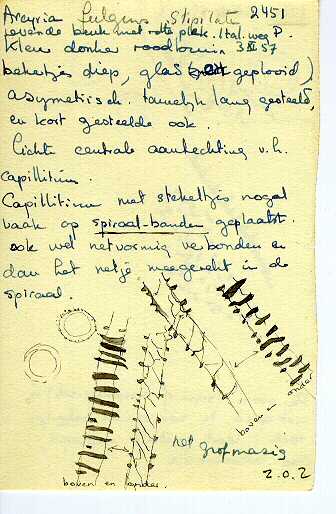 Arcyria fulgens Stipitata 2451
levende beuk met rotte plek. Ital. weg P.
Kleur donker roodbruin 3 XI 57
bekertjes diep, glad (niet geplooid)
asymetrisch. tamelijk lang gesteeld,
en kort gesteelde ook.
lichte centrale aanhechting v.h.
capillitium.
Capillitium met stekeltjes nogal
vaak op spiraal-banden geplaatst.
ook wel netvormig verbonden en
dan het netje meegerekt in de
spiraal.
boven en onder
net grofmazig
boven en onder.
2.0.2